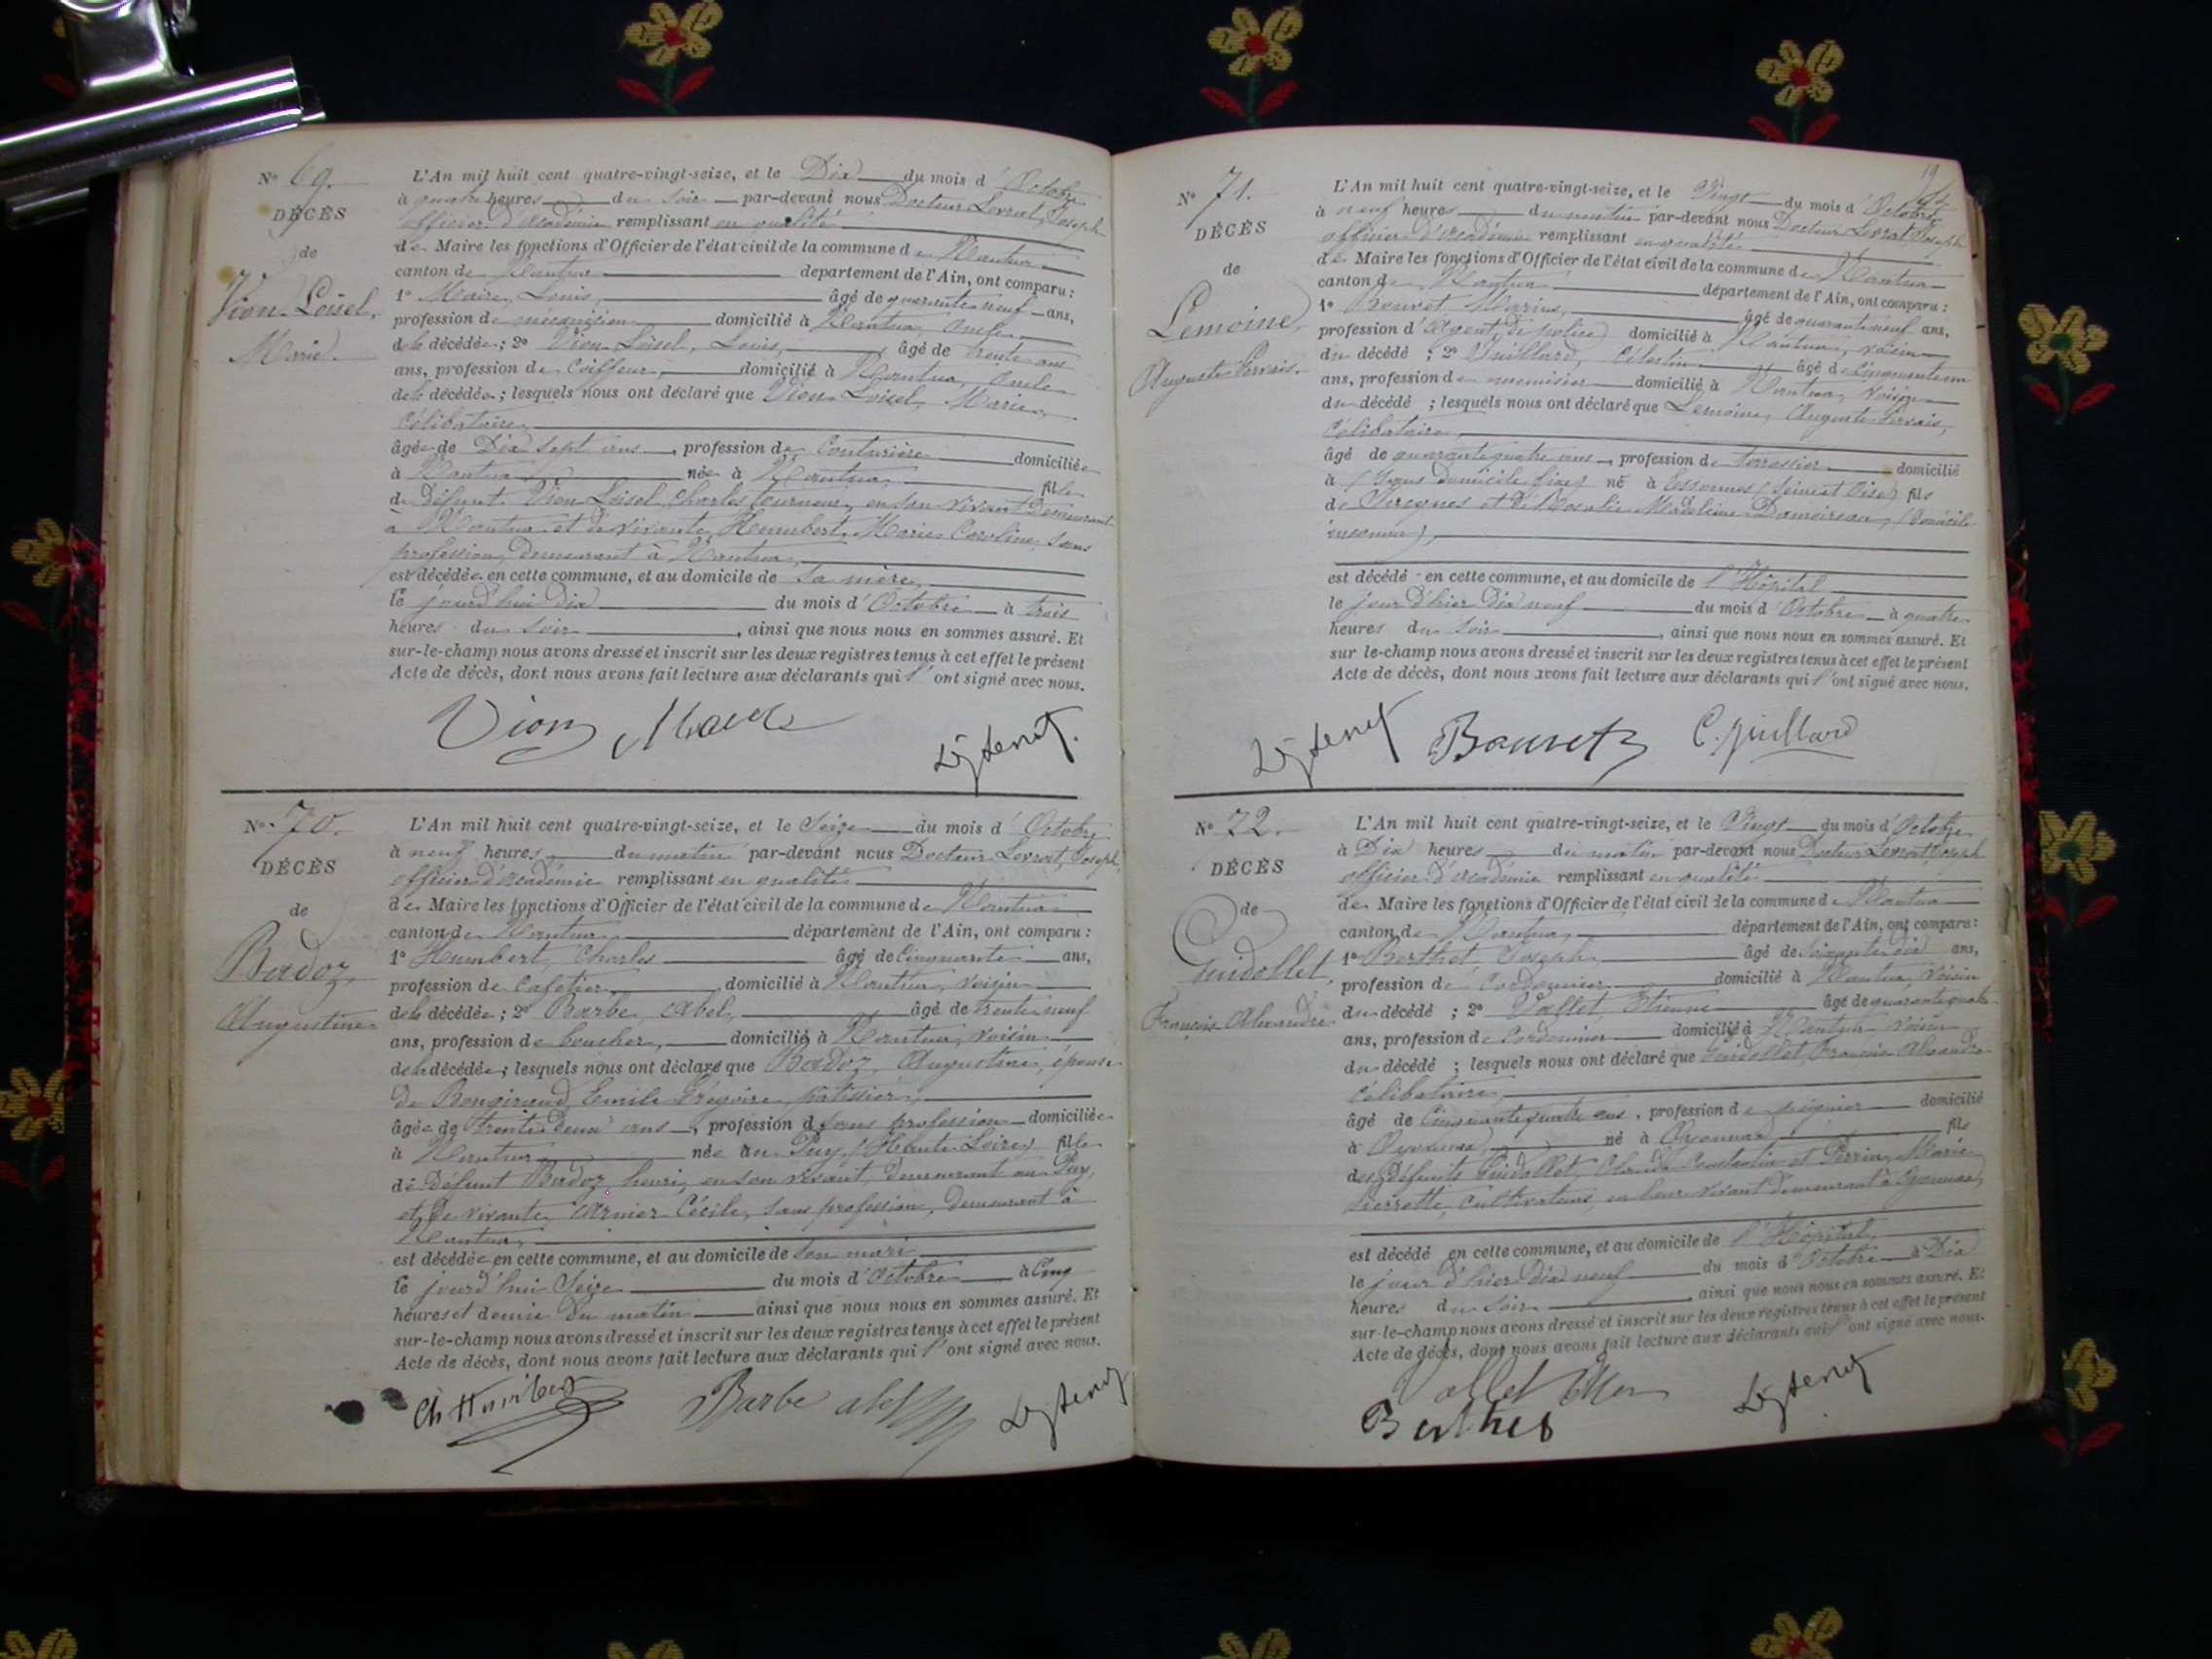 N° 69.
DÉCÈS
de
Vion-Loisel,
Marie.
L'An mil huit cent quatre-vingt-seize, et le Dix du mois d'Octobre
à quatre heures du soir par-devant nous Docteur Levrat, Joseph
officier d'académie remplissant en qualité
de Maire les fonctions d'Officier de l'état civil de la commune de Nantua
canton de Nantua département de l'Ain, ont comparu :
1° Louis, âgé de quarante neuf ans,
profession de mécanicien domicilié à Nantua, oncle
de la décédée ; 2° Vion-Loisel, Louis, âgé de trente ans
ans, profession de Coiffeur, domicilié à Nantua, oncle
de la décédée ; lesquels nous ont déclaré que Vion-Loisel, Marie,
célibataire,
âgée de Dix sept ans, profession de Couturière domiciliée
à Nantua née à Nantua fille
de défunt Vion-Loisel, Charles tourneur, en son vivant demeurant
à Nantua et de vivante Humbert, Marie Caroline, sans
profession, demeurant à Nantua,
est décédée en cette commune, et au domicile de sa mère,
le jourd'hui dix du mois d'Octobre à trois
heures du soir, ainsi que nous nous en sommes assuré. Et
sur-le-champ nous avons dressé et inscrit sur les deux registres tenus à cet effet le présent
Acte de décès, dont nous avons fait lecture aux déclarants qui l'ont signé avec nous.
Vion
N° 70.
DÉCÈS
de
Badoz
Augustine
L'An mil huit cent quatre-vingt-seize, et le Seize du mois d'Octobre
à neuf heures du matin par-devant nous Docteur Levrat, Joseph
officier d'académie remplissant en qualité
de Maire les fonctions d'Officier de l'état civil de la commune de Nantua
canton de Nantua département de l'Ain, ont comparu :
1° Humbert, Charles âgé de Cinquante ans,
profession de Cafetier, domicilié à Nantua, voisin
de la décédée ; 2° Barbe, Abel, âgé de trente neuf
ans, profession de boucher, domicilié à Nantua, voisin
de la décédée ; lesquels nous ont déclaré que Badoz, Augustine, épouse
de Emile Grégoire, pâtissier,
âgée de trente deux ans, profession d sans profession domiciliée
à Nantua née au Puy (Haute Loire) fille
de défunt Badoz, henri, en son vivant, demeurant au Puy,
et de vivante, Cécile, sans profession, demeurant à
Nantua,
est décédée en cette commune, et au domicile de son mari
le jourd'hui Seize du mois d'Octobre à Cinq
heures et demie du matin ainsi que nous nous en sommes assuré. Et
sur-le-champ nous avons dressé et inscrit sur les deux registres tenus à cet effet le présent
Acte de décès, dont nous avons fait lecture aux déclarants qui l'ont signé avec nous.
Ch Humbert Barbe abel
19
N° 71.
DÉCÈS
de
Lemoine,
Auguste Gervais.
L'An mil huit cent quatre-vingt-seize, et le Vingt du mois d'Octobre
à neuf heures du matin par-devant nous Docteur Levrat, Joseph
officier d'académie remplissant en qualité
de Maire les fonctions d'Officier de l'état civil de la commune de Nantua
canton de Nantua département de l'Ain, ont comparu :
1° Marius, âgé de quarante neuf ans,
profession d'Agent de police domicilié à Nantua, voisin
du décédé ; 2° Vuillard, Célestin âgé de cinquante un
ans, profession de menuisier domicilié à Nantua, voisin
du décédé ; lesquels nous ont déclaré que Lemoine, Auguste Gervais,
célibataire,
âgé de quarante quatre ans, profession de terrassier domicilié
à (sans domicile fixe) né à Essonnes (Seine et Oise) fils
de et de Rosalie Madeleine Damoiseau, (domicile
inconnu),
est décédé en cette commune, et au domicile de l'Hôpital
le jour d'hier dix neuf du mois d'Octobre à quatre
heures du soir, ainsi que nous nous en sommes assuré. Et
sur le-champ nous avons dressé et inscrit sur les deux registres tenus à cet effet le présent
Acte de décès, dont nous avons fait lecture aux déclarants qui l'ont signé avec nous.
C. Vuillard
N° 72.
DÉCÈS
de
Guidollet,
François Alexandre
L'An mil huit cent quatre-vingt-seize, et le Vingt du mois d'Octobre
à Dix heures du matin par-devant nous Docteur Levrat Joseph
officier d'académie remplissant en qualité
de Maire les fonctions d'Officier de l'état civil de la commune de Nantua
canton de Nantua, département de l'Ain, ont comparu :
1° Berthet, Joseph, âgé de soixante dix ans,
profession de Cordonnier domicilié à Nantua, voisin
du décédé ; 2° Vallet, Etienne âgé de quarante quatre
ans, profession de Cordonnier domicilié à Nantua voisin
du décédé ; lesquels nous ont déclaré que Guidollet, François Alexandre
célibataire,
âgé de Cinquante quatre ans, profession de peignier domicilié
à Oyonnax, né à Oyonnax fils
des défunts Guidollet, Claude Constantin et Perrin, Marie
Pierrette, cultivateurs, en leur vivant demeurant à Oyonnax,
est décédé en cette commune, et au domicile de l'Hôpital
le jour d'hier dix neuf du mois d'Octobre à Dix
heures du soir, ainsi que nous nous en sommes assuré. Et
sur-le-champ nous avons dressé et inscrit sur les deux registres tenus à cet effet le présent
Acte de décès, dont nous avons fait lecture aux déclarants qui l'ont signé avec nous.
Vallet
Berthet